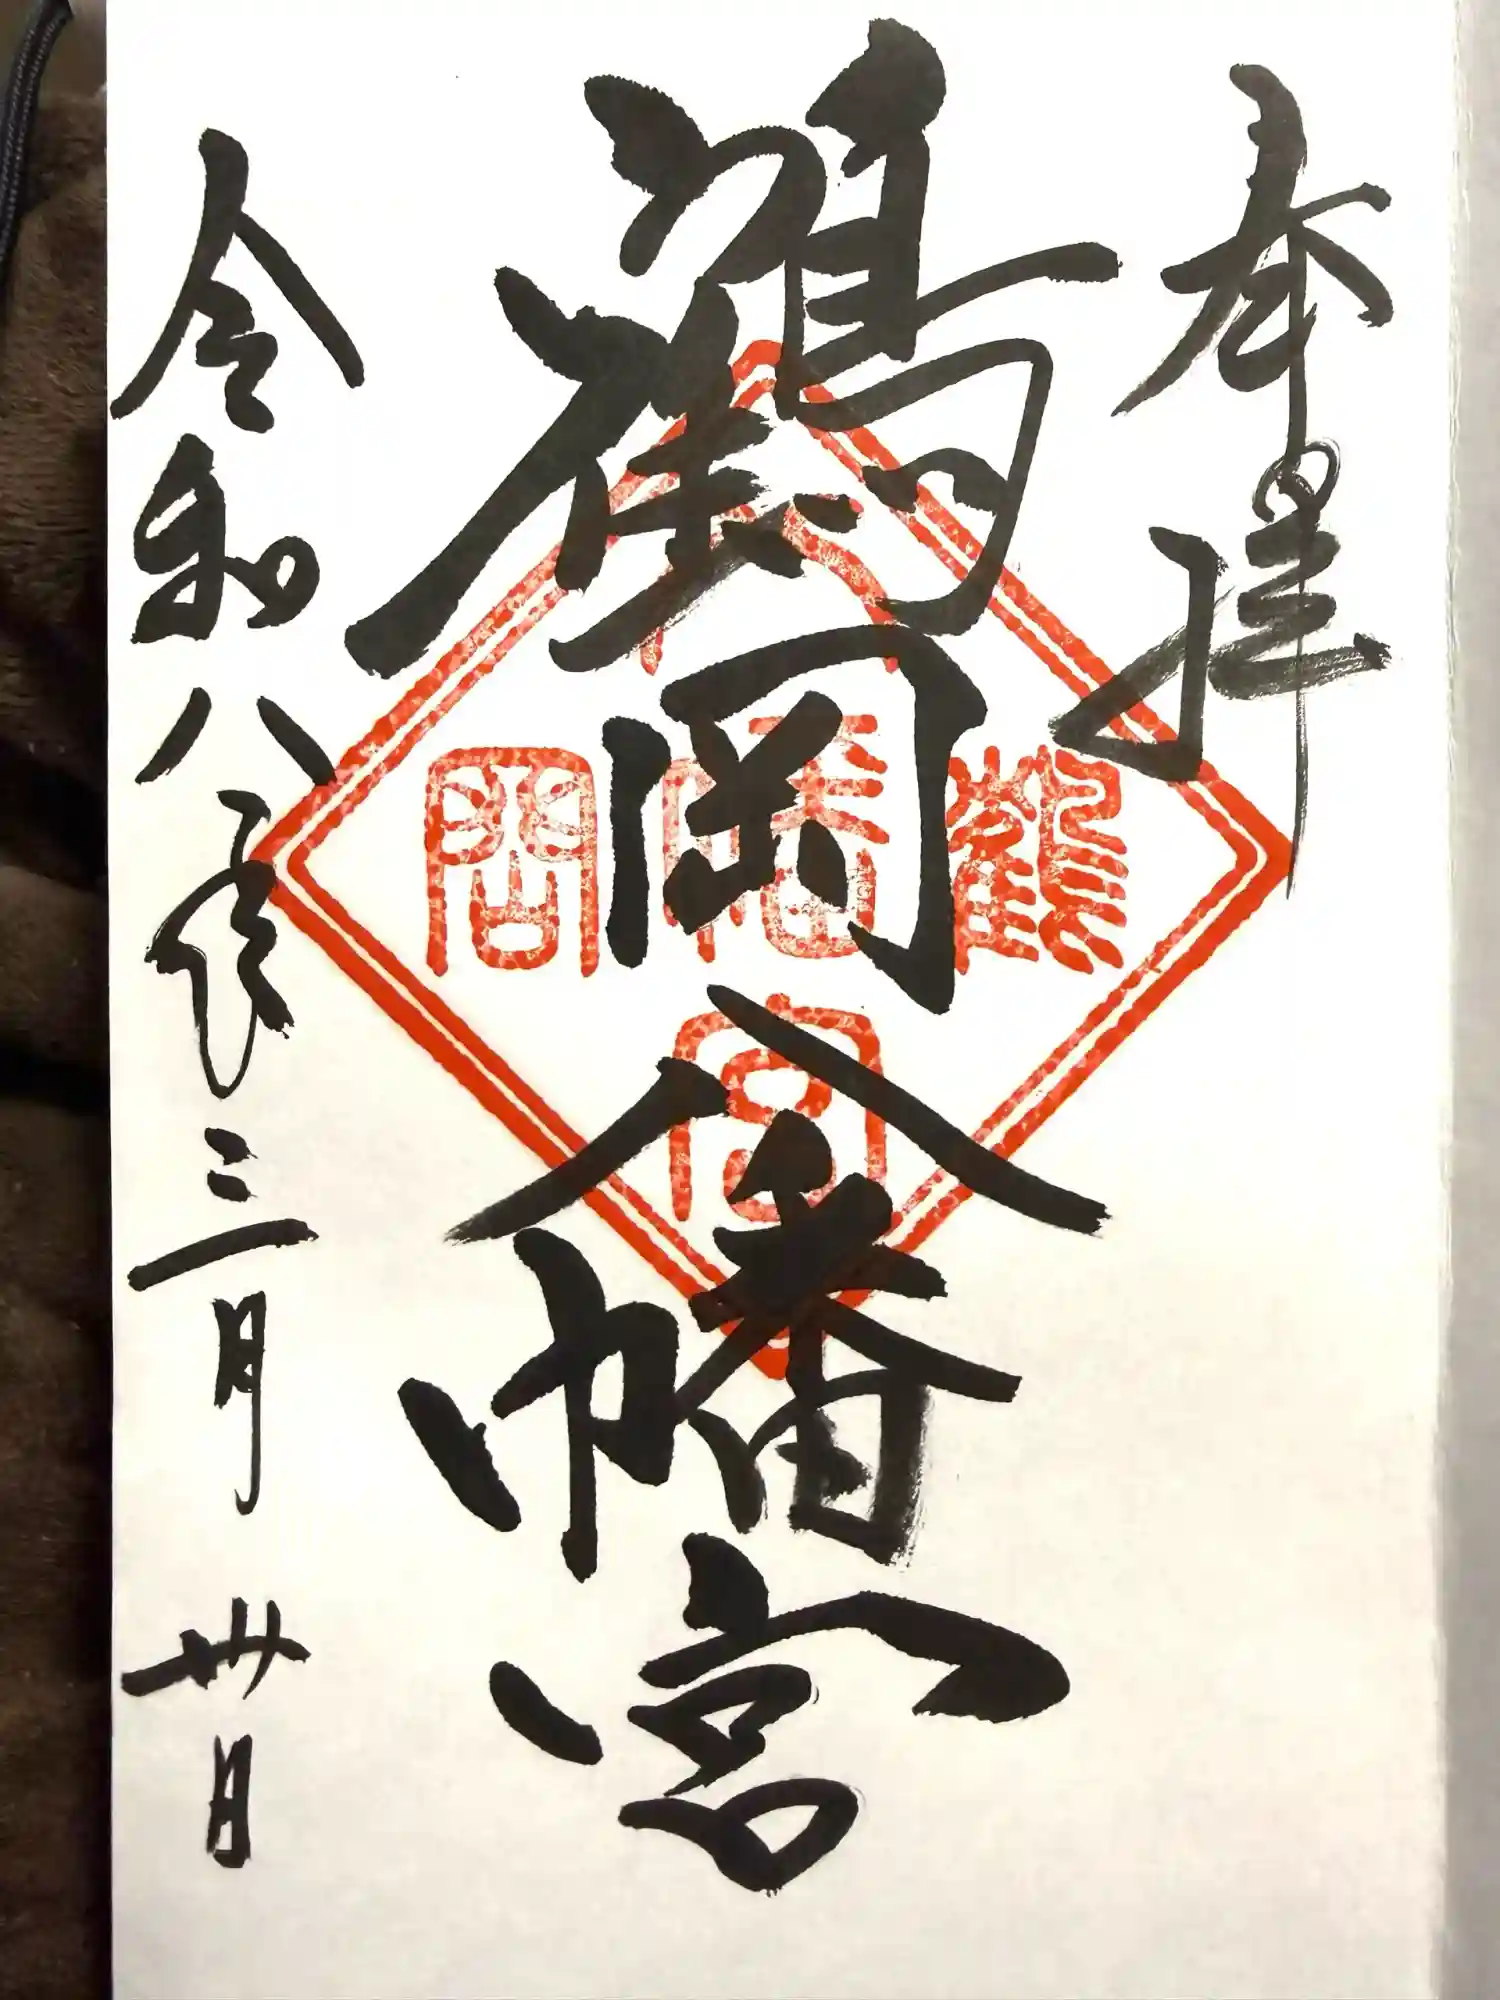 奉拝
鶴岡八幡宮
令和八三月卅日
鶴岡八幡宮